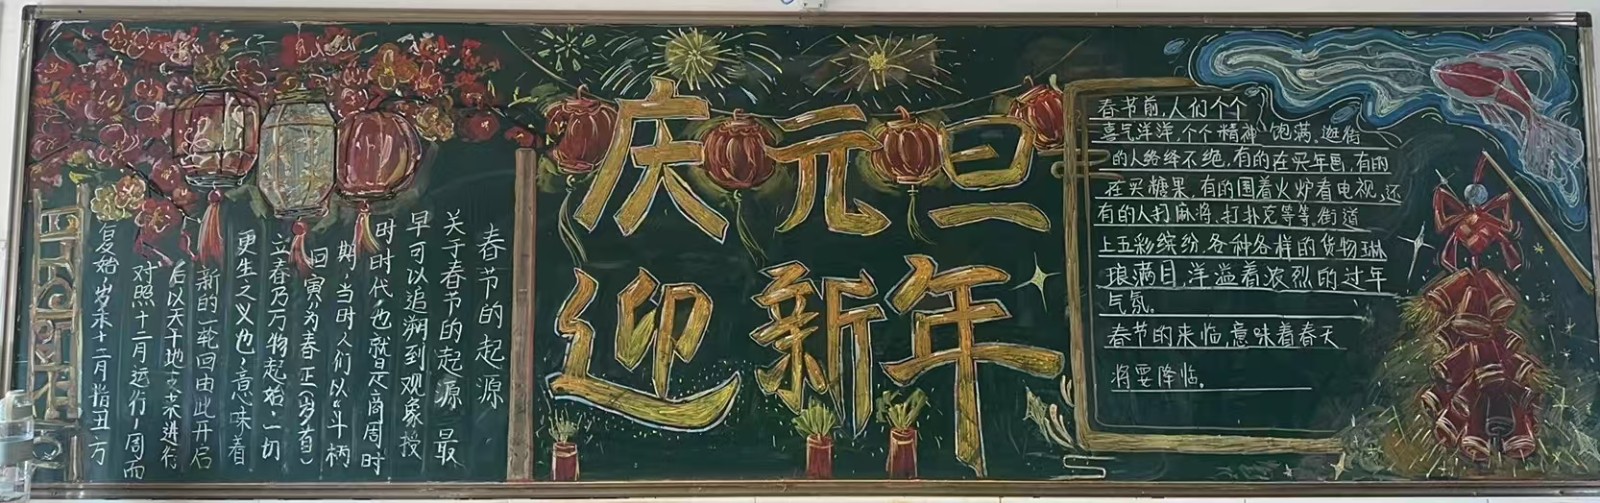 庆元旦
迎新年
春节的起源
关于春节的起源最
早可以追溯到观象授
时时代,也就是商周时
期,当时人们以斗柄
回寅为春正(岁首)
立春乃万物起始、一切
更生之义也,意味着
新的一轮回由此开启
后以天干地支来进行
对照十二月运行1周而
复始,岁末十二月指丑方
春节前,人们个个
喜气洋洋,个个精神饱满。逛街
的人络绎不绝,有的在买年画,有的
在买糖果,有的围着火炉看电视,还
有的人打麻将、打扑克等等。街道
上五彩缤纷,各种各样的货物琳
琅满目,洋溢着浓烈的过年
气氛。
春节的来临,意味着春天
将要降临。